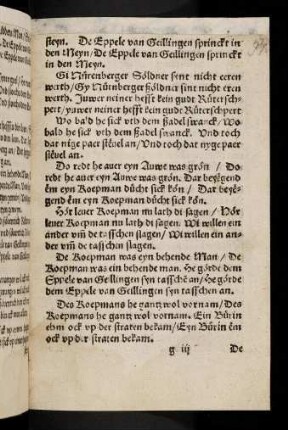 steyn. De Eppele van Geillingen sprinckt in
den Meyn/De Eppele van Geillingen sprinckt
in den Meyn.
Gi Nürenberger Söldner sent nicht eeren
werth/Gy Nürnberger söldner sint nicht eren
werth. Juwer neiner hefft kein gudt Rüterschy-
pert/yuwer neiner hefft kein gudt Rüterschypert
Wo ba'd he sick vth dem sadel swanck/ Wo
bald he sick vth dem sadel swanck. Vnd toch
dat nige paer stevel an/Vnd toch dat nyge paer
stevel an.
Do redt he auer eyn Auwe was grön / Do
redt he auer eyn Auwe was grön. Dar beyegend
em eyn Koepman dücht sick kön / Dar beye-
gend em eyn Koepman dücht sick kön.
Hör leuer Koepman nu lath di sagen / Hör
leuer Koepman nu lath di sagen. Wi willen ein
ander vm̃ de tasschen slagen/ Wi willen ein an-
der vm̃ de tasschen slagen.
De Koepman was eyn behende Man / De
Koepman was ein behende man. He görde dem
Eppele van Geillingen syn tasschē an/He görde
dem Eppele van Geillingen syn tasschen an.
Des Koepmans he gantz wol vornam/Des
Koepmans he gantz wol vornam. Ein Bürin
ehm ock vp der straten bekam/Eyn Bürin ēm
ock vp der straten bekam.
g iij De